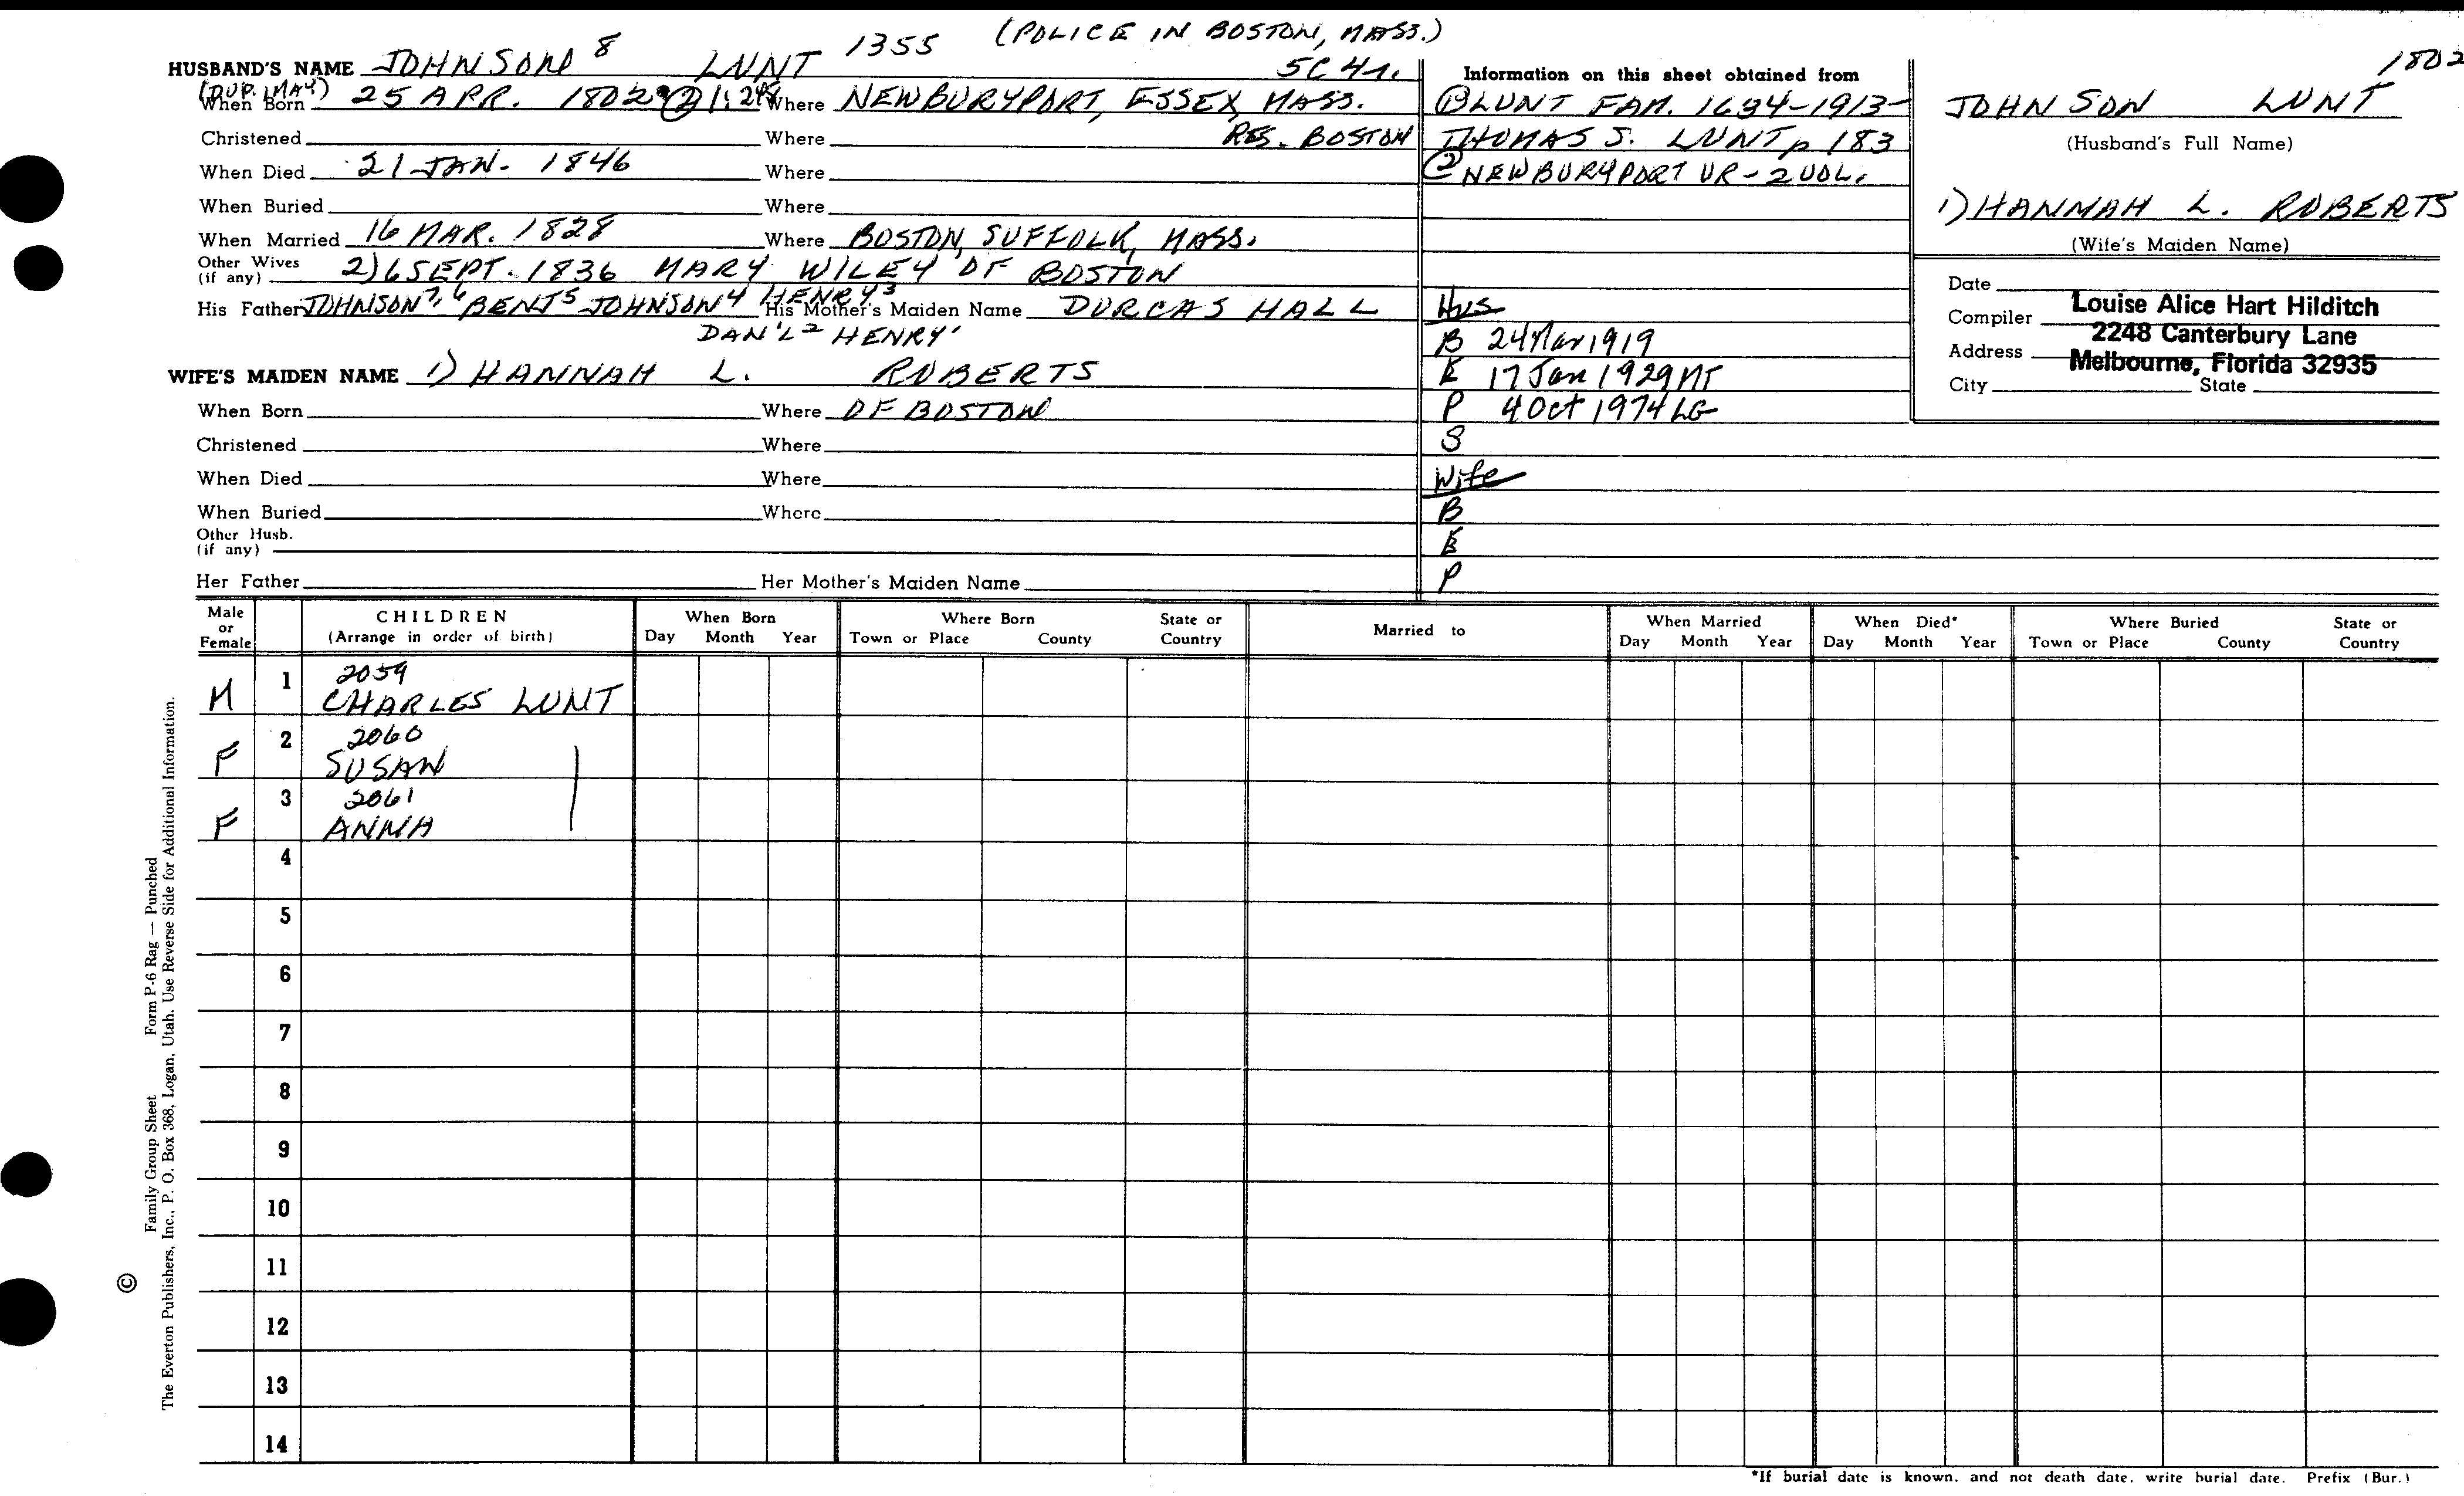 (POLICE IN BOSTON, MASS.)
1802
HUSBAND'S NAME JOHNSON 8 LUNT 1355 5 C 41.
(DUP. 1 MAY)
When Born 25 APR. 1802 ② 1:248 Where NEWBURYPORT, ESSEX, MASS.
Christened Where RES. BOSTON
When Died 21 JAN. 1846 Where
When Buried Where
When Married 16 MAR. 1828 Where BOSTON, SUFFOLK, MASS.
Other Wives (if any) 2) 6 SEPT. 1836 MARY WILEY OF BOSTON
His Father JOHNSON 7, 6 BENJ 5 JOHNSON 4 HENRY 3 His Mother's Maiden Name DORCAS HALL
DAN'L 2 HENRY 1
WIFE'S MAIDEN NAME 1) HANNAH L. ROBERTS
When Born Where OF BOSTON
Christened Where
When Died Where
When Buried Where
Other Husb.
(if any)
Her Father Her Mother's Maiden Name
Information on this sheet obtained from
① LUNT FAM. 1634-1913-
THOMAS S. LUNT p 183
② NEWBURYPORT VR - 2 VOL.
Hus
B 24 Mar 1919
E 17 Jan 1929 MT
P 4 Oct 1974 LG
S
Wife
B
E
P
JOHNSON LUNT
(Husband's Full Name)
1) HANNAH L. ROBERTS
(Wife's Maiden Name)
Date
Compiler Louise Alice Hart Hilditch
Address 2248 Canterbury Lane
Melbourne, Florida 32935
City State
Male or Female CHILDREN (Arrange in order of birth) When Born Day Month Year Where Born Town or Place County State or Country Married to When Married Day Month Year When Died* Day Month Year Where Buried Town or Place County State or Country
M 1 2059
CHARLES LUNT
F 2 2060
SUSAN
F 3 2061
ANNA
4
5
6
7
8
9
10
11
12
13
14
*If burial date is known, and not death date, write burial date. Prefix (Bur.)
© Family Group Sheet Form P-6 Rag — Punched
The Everton Publishers, Inc., P. O. Box 368, Logan, Utah. Use Reverse Side for Additional Information.